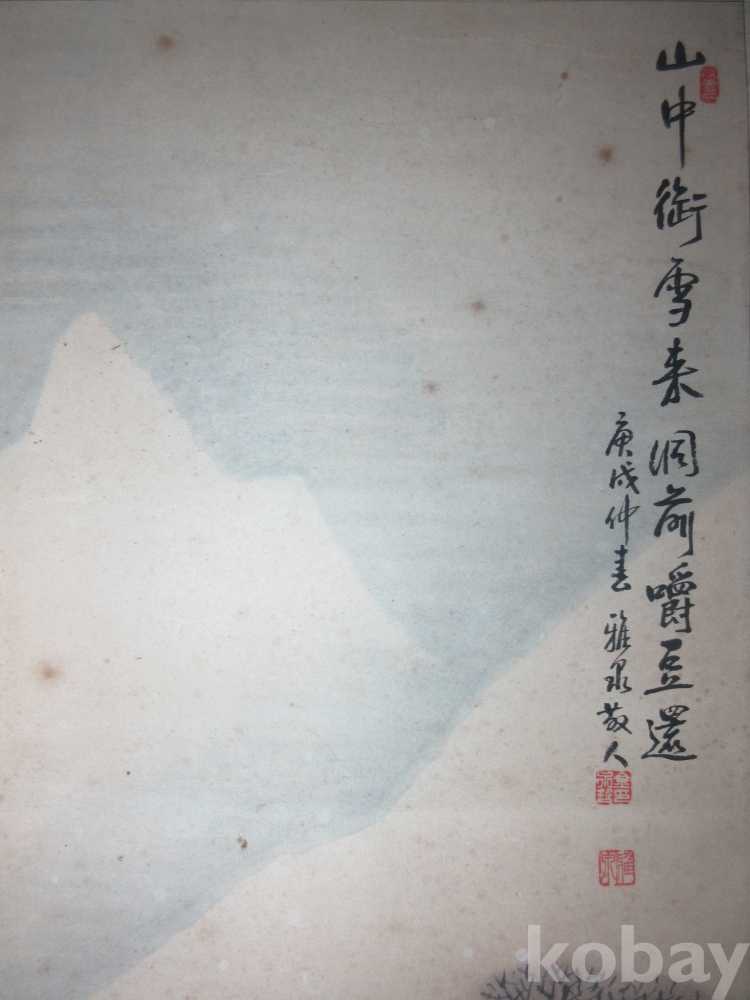 山中衔雪来洞前嚼豆還
庚戌仲春 雅泉散人
kobay